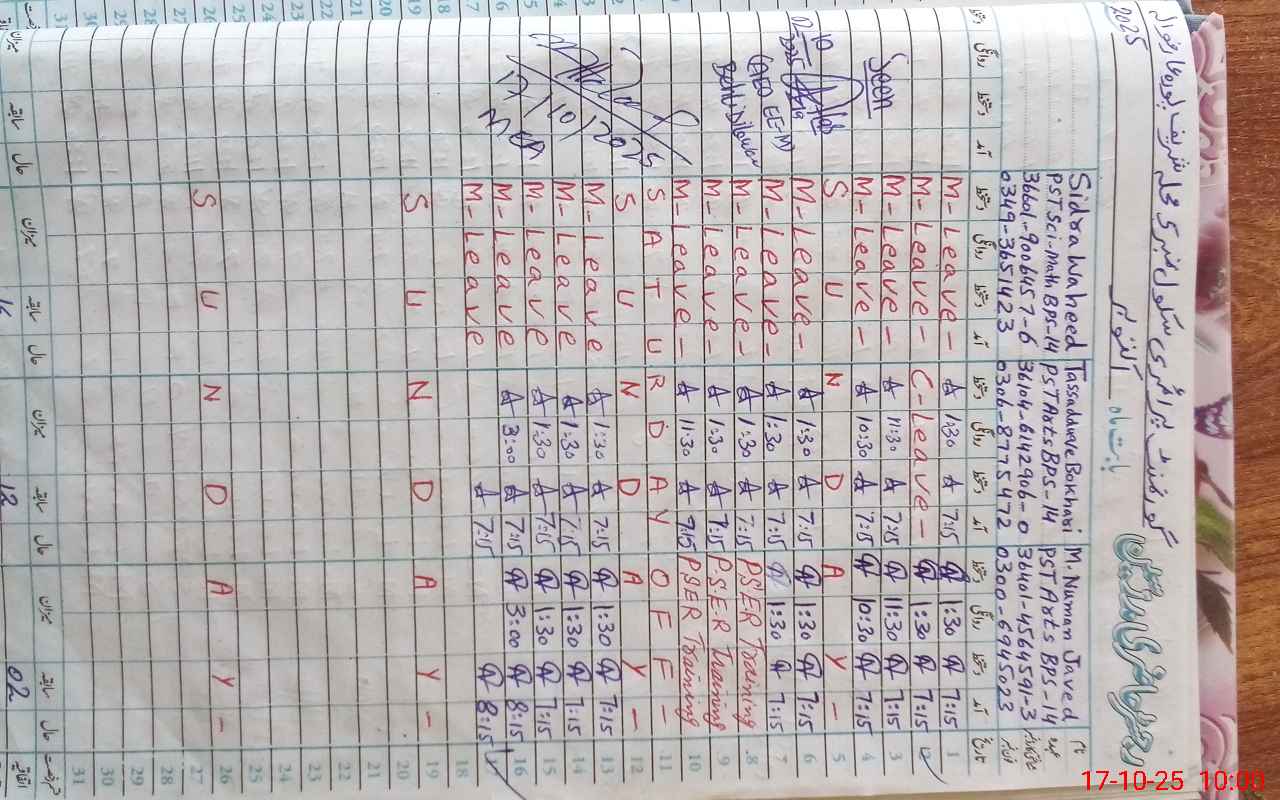 گورنمنٹ پرائمری سکول نمبری محلہ شریف پورہ
رجسٹر حاضری مدرسین
بابت ماہ اکتوبر 2025
نام M. Numan Javed Tassaddave Bokhari Sidra Waheed
عہدہ PST Arts BPS-14 PST Arts BPS-14 PST Sci-Math BPS-14
36401-4564591-3 36104-6142906-0 36601-9006457-6
0300-6945023 0306-8775472 0349-3651423
تاریخ آمد دستخط روانگی دستخط آمد دستخط روانگی دستخط آمد دستخط روانگی دستخط آمد دستخط روانگی دستخط
1 7:15 1:30 7:15 1:30 M-Leave-
2 7:15 1:30 C-Leave- M-Leave-
3 7:15 11:30 7:15 11:30 M-Leave-
4 7:15 10:30 7:15 10:30 M-Leave-
5 S U N D A Y -
6 7:15 1:30 7:15 1:30 M-Leave-
7 7:15 1:30 7:15 1:30 M-Leave-
8 PSER Training 7:15 1:30 M-Leave-
9 PSER Training 7:15 1:30 M-Leave-
10 PSER Training 7:15 11:30 M-Leave-
11 S A T U R D A Y O F F -
12 S U N D A Y -
13 7:15 1:30 7:15 1:30 M-Leave
14 7:15 1:30 7:15 1:30 M-Leave
15 7:15 1:30 7:15 1:30 M-Leave
16 8:15 3:00 7:15 3:00 M-Leave
8:15 7:15 M-Leave
18
19 S U N D A Y -
20
21
22
23
24
25
26 S U N D A Y -
27
28
29
30
31
حال سابقہ میزان حال سابقہ میزان حال سابقہ میزان حال سابقہ میزان
02 12
Seen
10
02
2025
AEO EE-M
17/10/2025
17-10-25 10:00